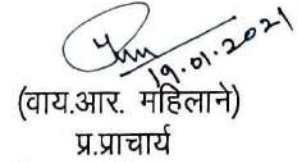 19.01.2021
(वाय.आर. महिलाने)
प्र.प्राचार्य